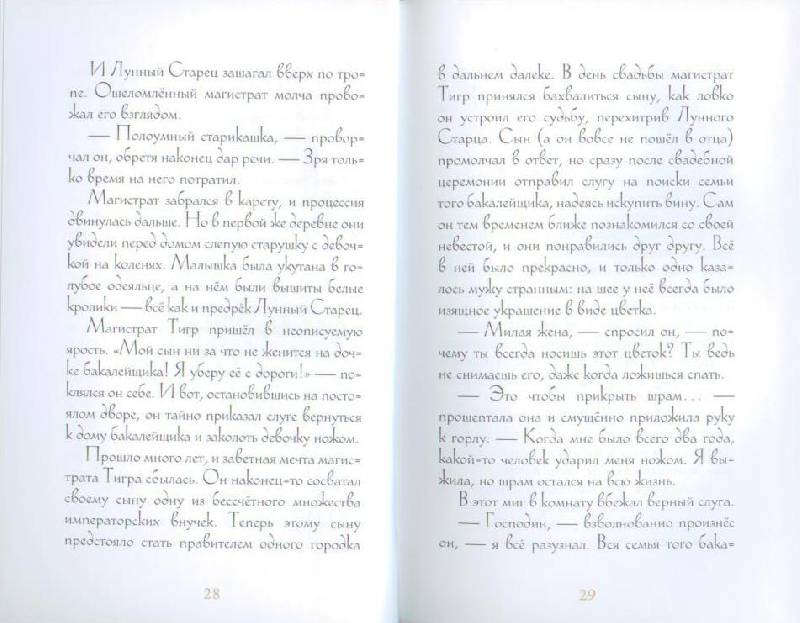 И Лунный Старец зашагал вверх по тро-
пе. Ошеломлённый магистрат молча прово-
жал его взглядом.
— Полоумный старикашка, — провор-
чал он, обретя наконец дар речи. — Зря толь-
ко время на него потратил.
Магистрат забрался в карету, и процессия
двинулась дальше. Но в первой же деревне они
увидели перед домом слепую старушку с девоч-
кой на коленях. Малышка была укутана в го-
лубое одеяльце, а на нём были вышиты белые
кролики — всё как и предрёк Лунный Старец.
Магистрат Тигр пришёл в неописуемую
ярость. «Мой сын ни за что не женится на доч-
ке бакалейщика! Я уберу её с дороги!» — по-
клялся он себе. И вот, остановившись на пос-
тоялом дворе, он тайно приказал слуге вернуться
к дому бакалейщика и заколоть девочку ножом.
Прошло много лет, и заветная мечта магис-
трата Тигра сбылась. Он наконец-то сосватал
своему сыну одну из бессчётного множества
императорских внучек. Теперь этому сыну
предстояло стать правителем одного городка
28
в дальнем далеке. В день свадьбы магистрат
Тигр принялся бахвалиться сыну, как ловко
он устроил его судьбу, перехитрив Лунного
Старца. Сын (а он вовсе не пошёл в отца)
промолчал в ответ, но сразу после свадебной
церемонии отправил слугу на поиски семьи
того бакалейщика, надеясь искупить вину. Сам
он тем временем ближе познакомился со своей
невестой, и они понравились друг другу. Всё
в ней было прекрасно, и только одно каза-
лось мужу странным: на шее у неё всегда было
изящное украшение в виде цветка.
— Милая жена, — спросил он, — по-
чему ты всегда носишь этот цветок? Ты ведь
не снимаешь его, даже когда ложишься спать.
— Это чтобы прикрыть шрам... —
прошептала она и смущённо приложила руку
к горлу. — Когда мне было всего два года,
какой-то человек ударил меня ножом. Я вы-
жила, но шрам остался на всю жизнь.
В этот миг в комнату вбежал верный слуга.
— Господин, — взволнованно произнёс
он, — я всё разузнал. Вся семья того бака-
29